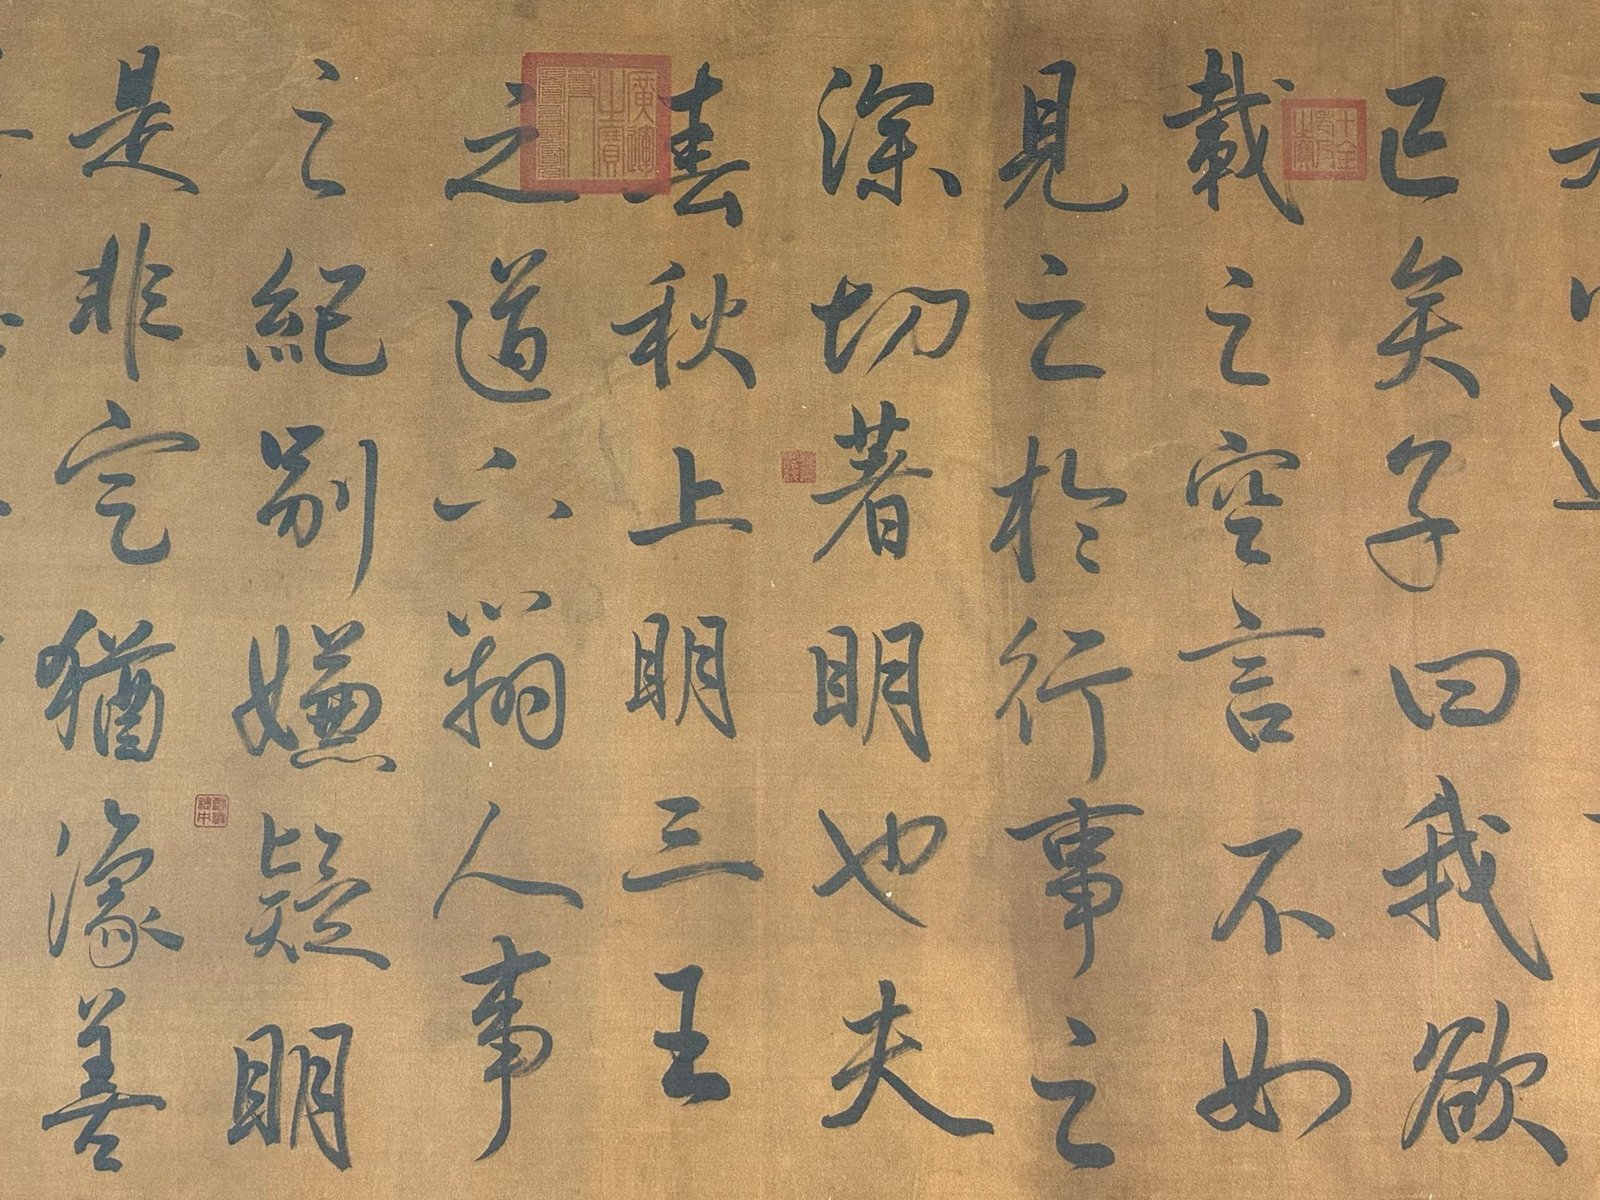 已矣子曰我欲
載之空言不如
見之於行事之
深切著明也夫
春秋上明三王
之道下辨人事
之紀別嫌疑明
是非定猶豫善